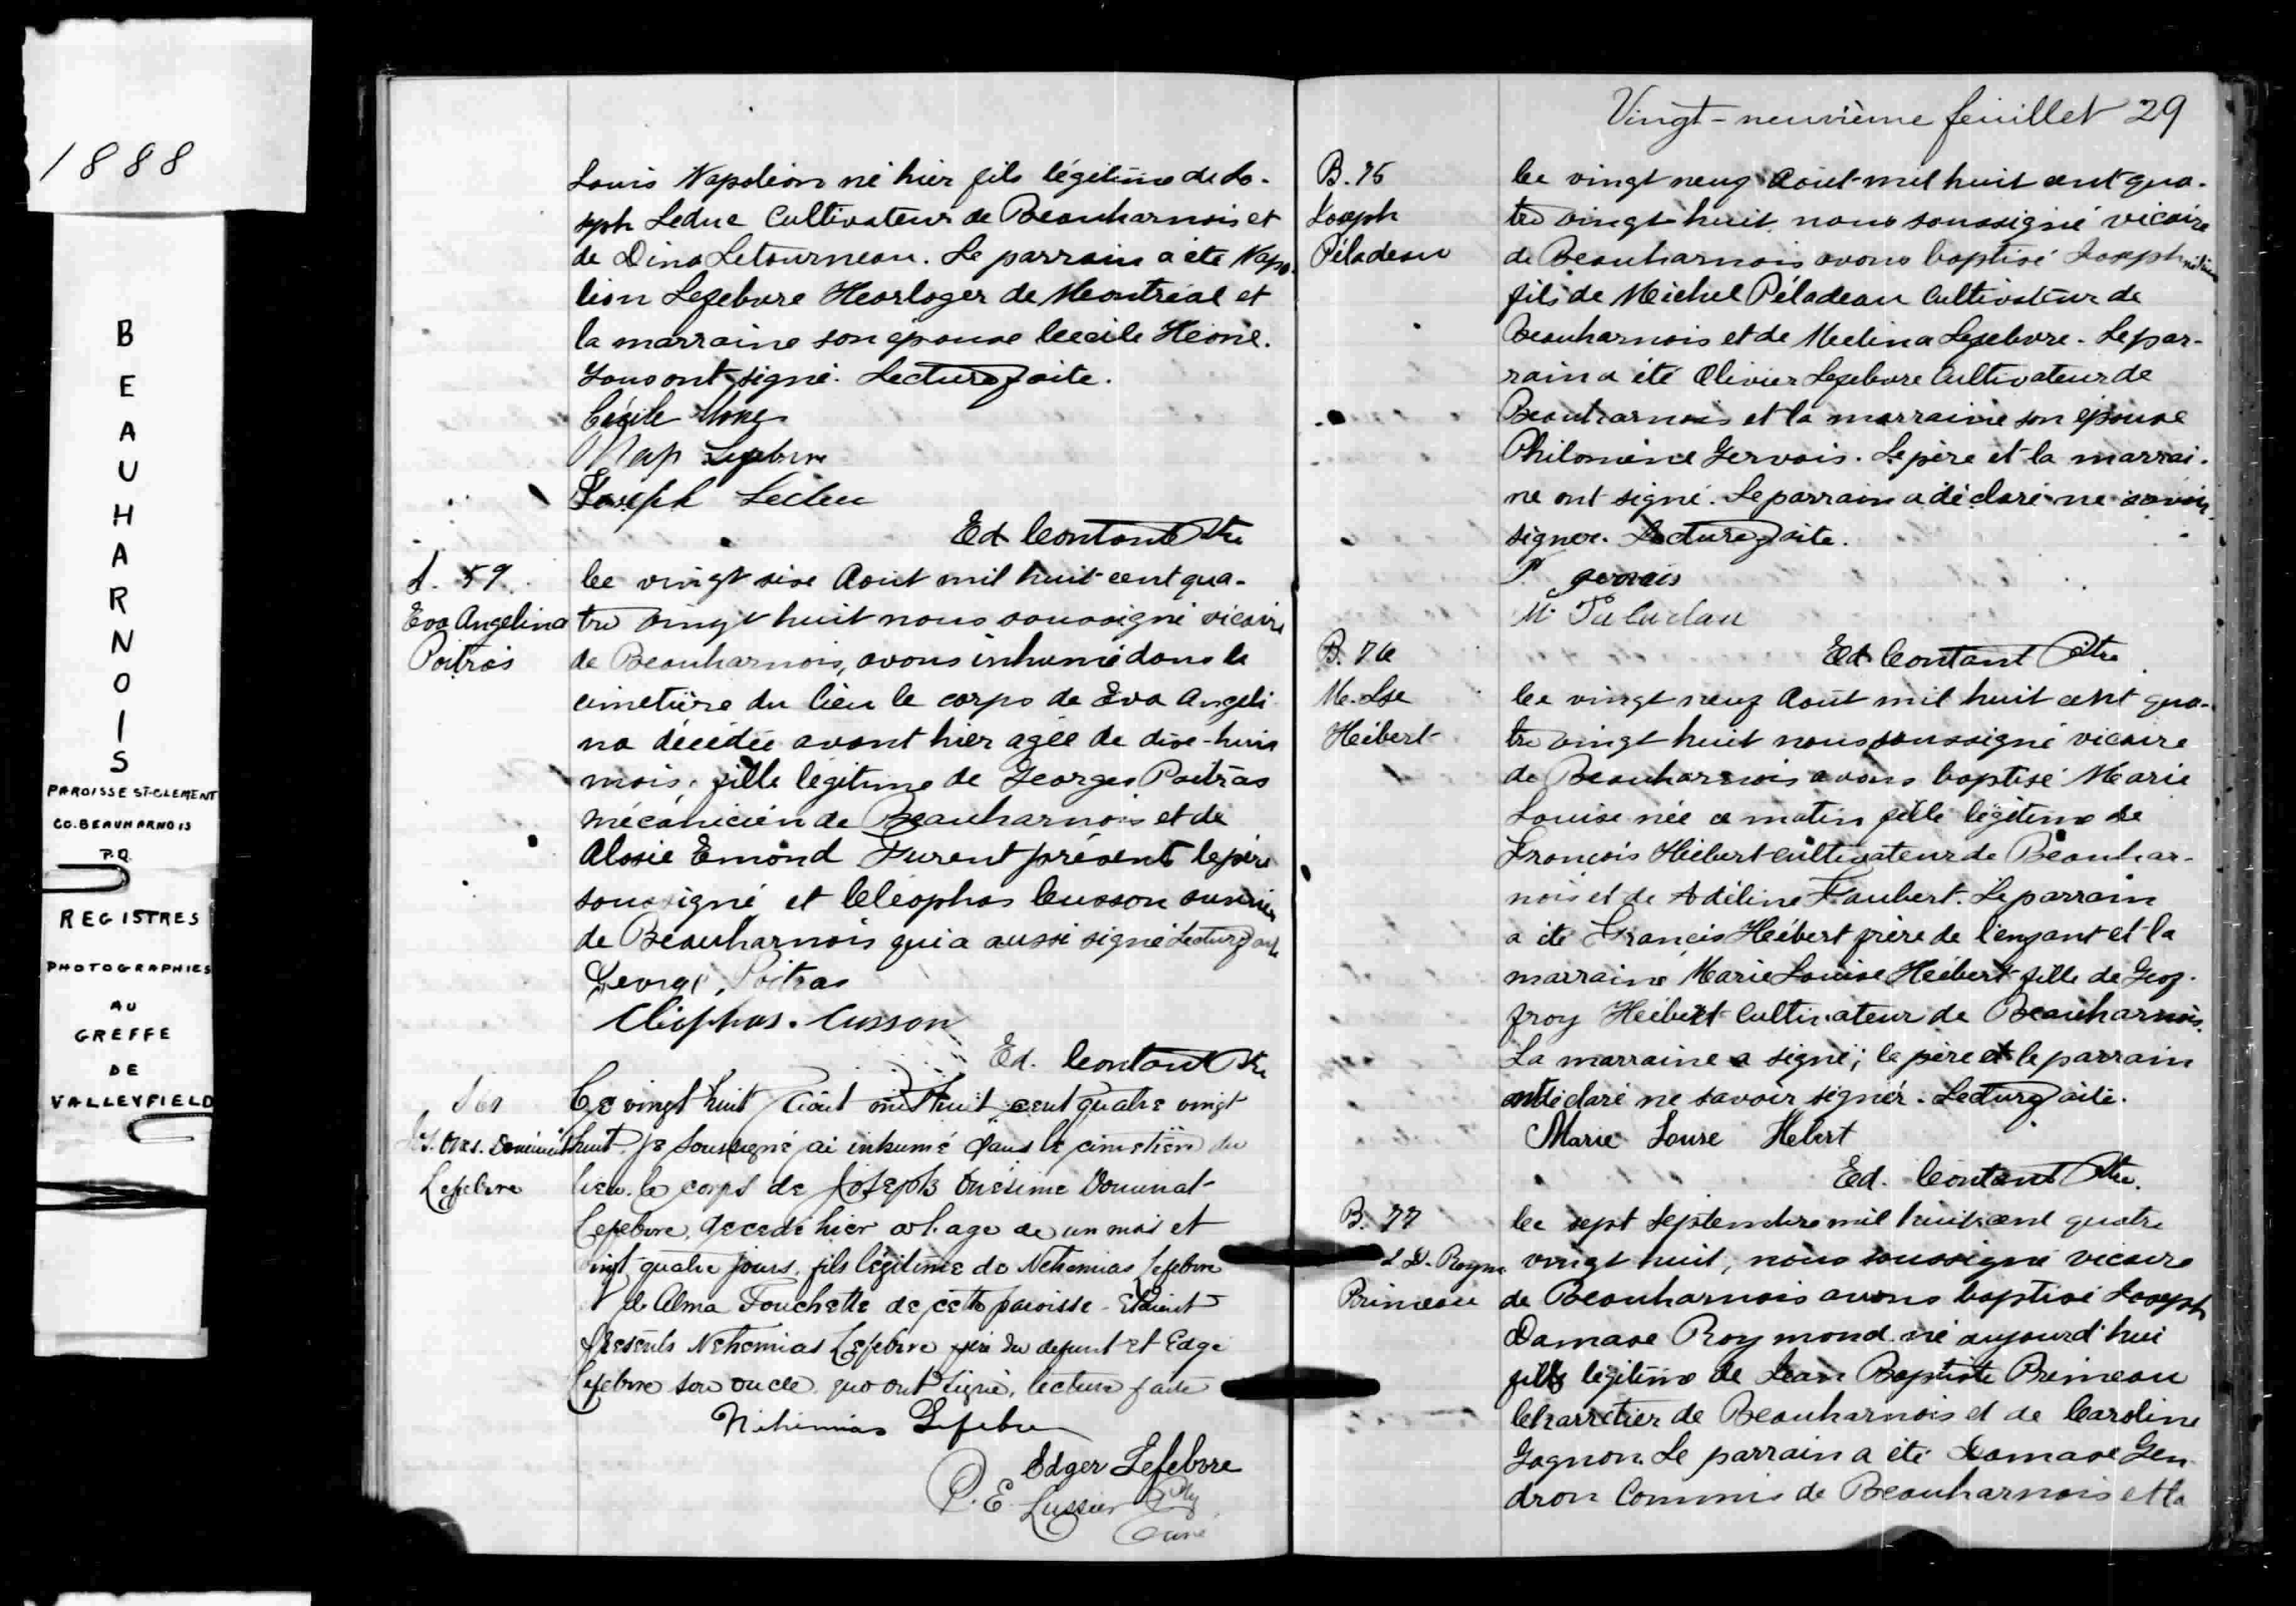 1888
BEAUHARNOIS
PAROISSE ST-CLEMENT
CO. BEAUHARNOIS
P.Q.
REGISTRES
PHOTOGRAPHIES
AU
GREFFE
DE
VALLEYFIELD
Louis Napoléon né hier fils légitime de Jo-
seph Leduc Cultivateur de Beauharnois et
de Dina Letourneau. Le parrain a été Napo-
léon Lefebvre Horloger de Montréal et
la marraine son épouse Cécile
Tous ont signé. Lecture faite.
Cécile
Nap Lefebvre
Joseph Leduc
Ed Contant Ptre
S. 59.
Eva Angelina
Poitras
Ce vingt six Aout mil huit cent qua-
tre vingt huit nous soussigné vicaire
de Beauharnois, avons inhumé dans le
cimetière du lieu le corps de Eva Angeli
na décédée avant hier agée de dix-huit
mois, fille légitime de Georges Poitras
mécanicien de Beauharnois et de
Alosie Emond Furent présents le père
soussigné et Cléophas Cusson ouvrier
de Beauharnois qui a aussi signé Lecture faite
George Poitras
Cléophas. Cusson
Ed. Contant Ptre
S 60
Jos. Ones. Dominat
Lefebvre
Ce vingt huit Août mil huit cent quatre vingt
huit je soussigné ai inhumé dans le cimetière du
lieu le corps de Joseph Onésime Dominat
Lefebvre, décédé hier a l'age de un mois et
vingt quatre jours, fils légitime de Nehemias Lefebvre
et de Alma Touchette de cette paroisse - Etaient
presents Nehemias Lefebvre père du defunt et Edge
Lefebvre son oucle qui ont signé, lecture faite
Nehemias Lefebvre
Edger Lefebvre
P. E. Lussier Ptre
Curé
Vingt-neuvième feuillet 29
B. 75
Joseph
Péladeau
Ce vingt neuf Août mil huit cent qua-
tre vingt huit, nous soussigné vicaire
de Beauharnois avons baptisé Joseph
fils de Michel Péladeau Cultivateur de
Beauharnois et de Melina Lefebvre. Le par-
rain a été Olivier Lefebvre Cultivateur de
Beauharnois et la marraine son épouse
Philomène Gervais. Le père et la marrai-
ne ont signé. Le parrain a déclaré ne savoir
signer. Lecture faite.
P. gervais
M. Peladeau
Ed Contant Ptre
B. 76
M. Lse
Hébert
Ce vingt neuf Août mil huit cent qua-
tre vingt huit nous soussigné vicaire
de Beauharnois avons baptisé Marie
Louise née ce matin fille légitime de
François Hébert Cultivateur de Beauhar-
nois et de Adéline Faubert. Le parrain
a été Francis Hébert frère de l'enfant et la
marraine Marie Louise Hébert fille de Geof-
froy Hébert Cultivateur de Beauharnois.
La marraine a signé; le père et le parrain
ont déclaré ne savoir signer. Lecture faite.
Marie Louise Hebert
Ed. Contant Ptre.
B. 77
J. D. Raym
Primeau
Ce sept Septembre mil huit cent quatre
vingt huit, nous soussigné vicaire
de Beauharnois avons baptisé Joseph
Damase Raymond né aujourd'hui
fils légitime de Jean Baptiste Primeau
Charretier de Beauharnois et de Caroline
Gagnon. Le parrain a été Damase Gen-
dron Commis de Beauharnois et la